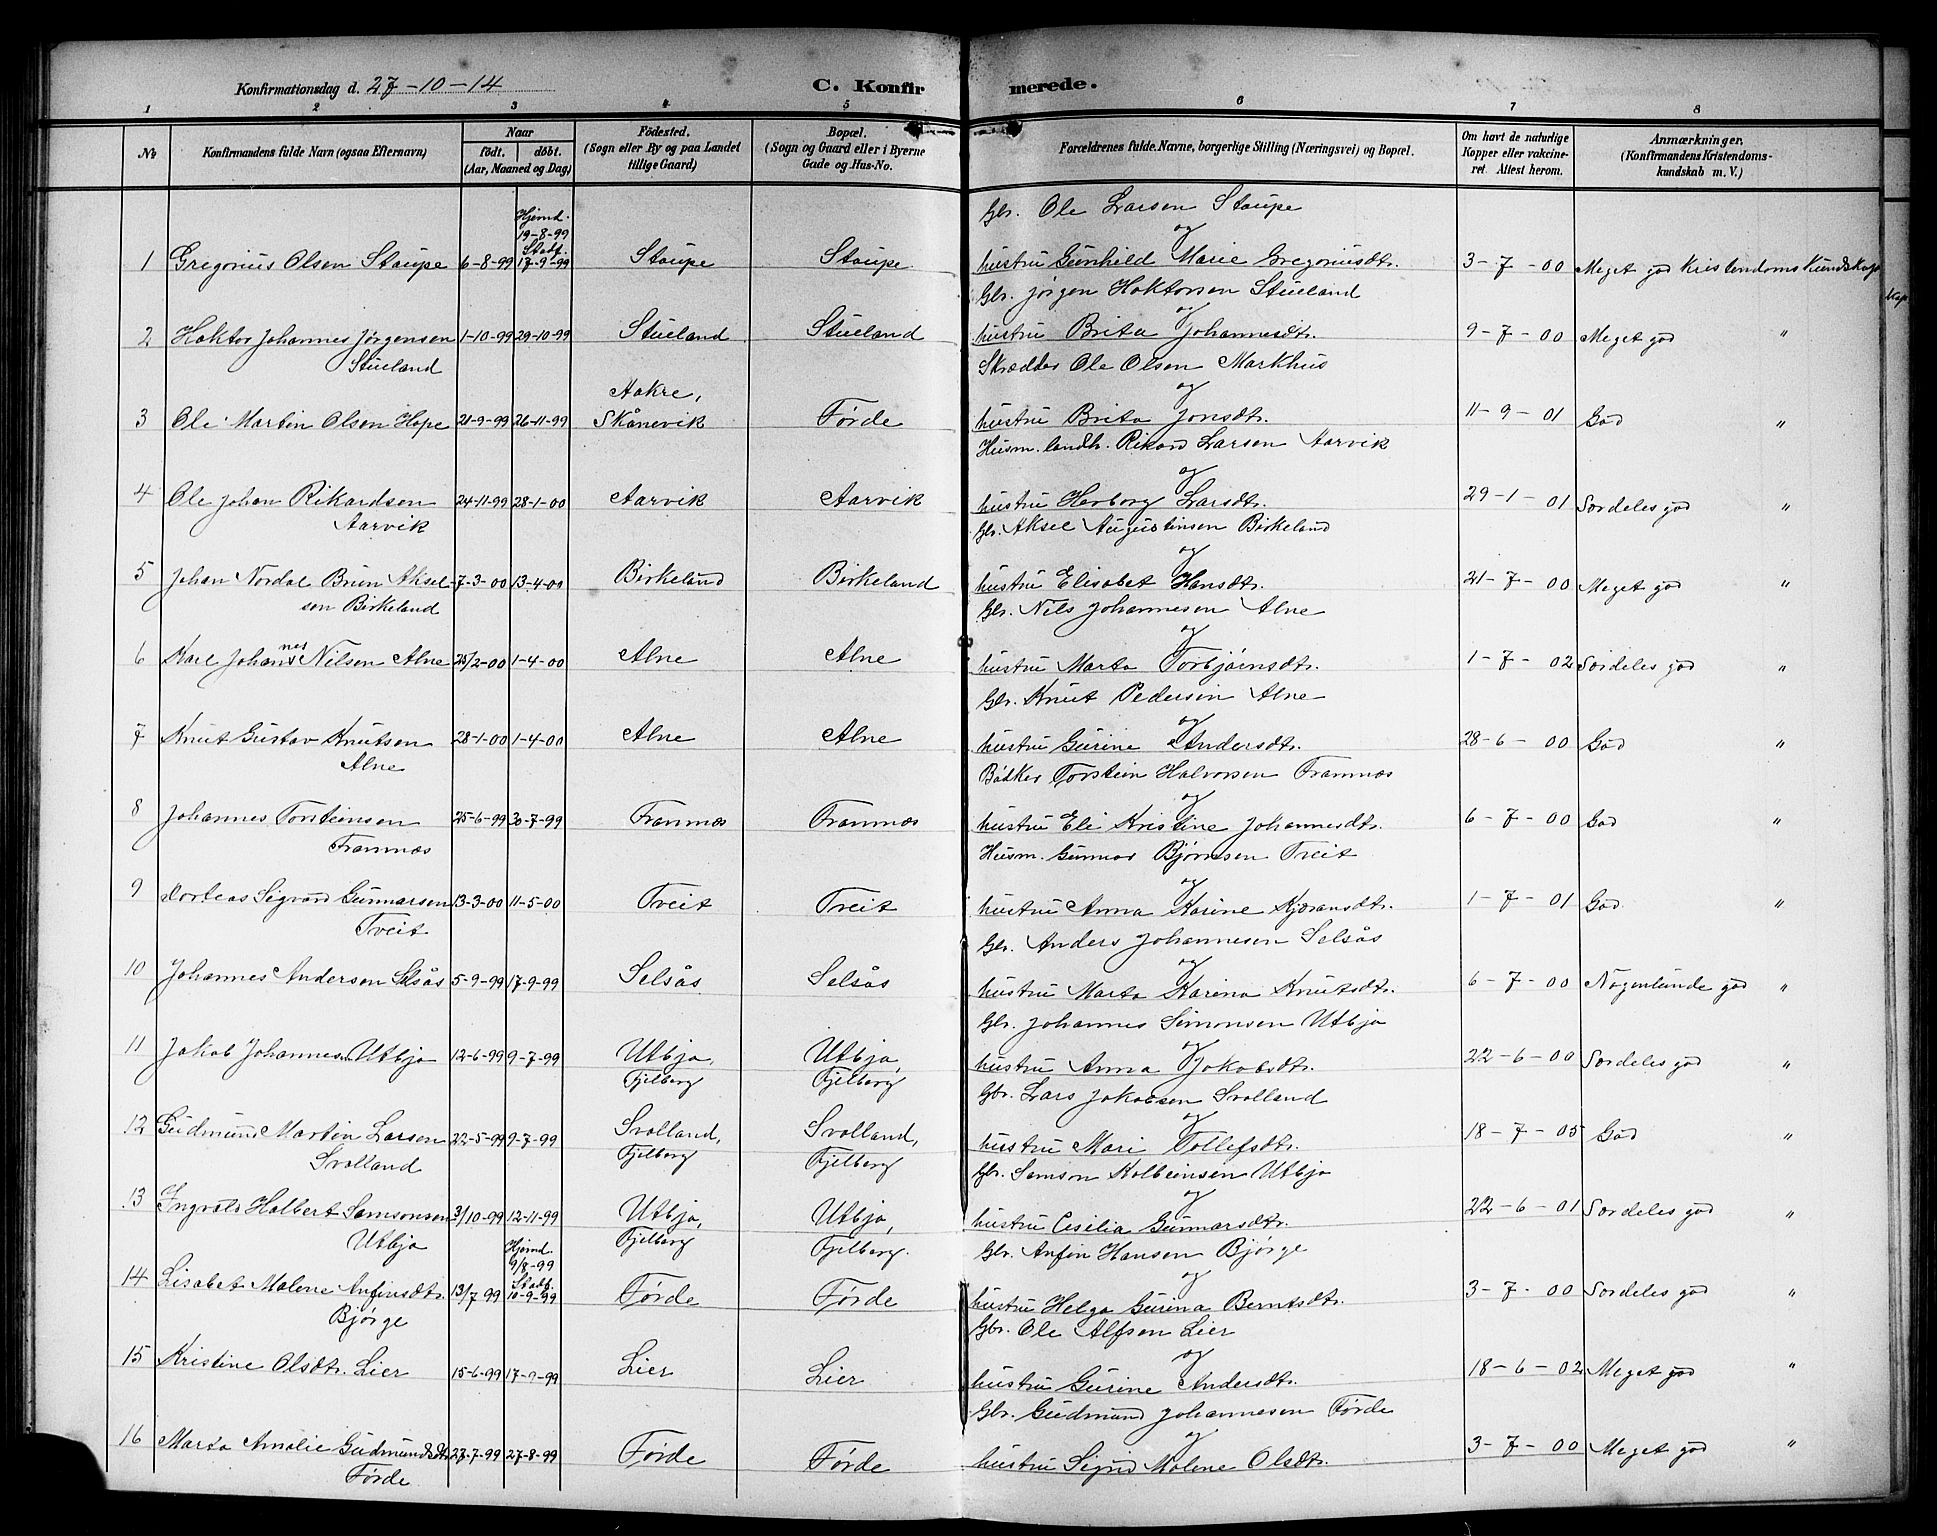 Konfirmationsdag d. 27-10-14
C. Konfir merede.
1 2 3 4 5 6 7 8
No
Konfirmandens fulde Navn (ogsaa Efternavn)
Naar
født. døbt.
(Aar, Maaned og Dag)
Fødested.
(Sogn eller By og paa Landet tillige Gaard)
Bopæl.
(Sogn og Gaard eller i Byerne Gade og Hus-No.
Forældrenes fulde Navne, borgerlige Stilling (Næringsvei) og Bopæl.
Om havt de naturlige Kopper eller vakcineret. Attest herom.
Anmærkninger.
(Konfirmandens Kristendomskundskab m. V.)
Gbr. Ole Larsen Staupe
og
Hjemd. 19-8-99 Stadf.
1 Gregorius Olsen Staupe 6-8-99 17-9-99 Staupe Staupe hustru Gunhild Marie Gregoriusdtr. 3-7-00 Meget god Kristendomskundskap
Gbr. Jørgen Haktorsen Stueland
og
2 Haktor Johannes Jørgensen 1-10-99 29-10-99 Stueland Stueland hustru Brita Johannesdtr. 9-7-00 Meget god "
Stueland
Skrædder Ole Olsen Markhus
og
Aakre,
3 Ole Martin Olsen Hope 21-9-99 26-11-99 Skånevik Førde hustru Brita Jonsdtr. 11-9-01 God "
Husm. landh. Rikard Larsen Aarvik
og
4 Ole Johan Rikardsen 24-11-99 28-1-00 Aarvik Aarvik hustru Herborg Larsdtr. 29-1-01 Særdeles god "
Aarvik
Gbr. Aksel Augustinsen Birkeland
og
5 Johan Nordal Brun Aksel- 7-3-00 13-4-00 Birkeland Birkeland hustru Elisabet Hansdtr. 21-7-00 Meget god "
sen Birkeland
Gbr. Nils Johannesen Alne
og
6 Karl Johannes Nilsen Alne 25/2-00 1-4-00 Alne Alne hustru Marta Torbjørnsdtr. 1-7-02 Særdeles god "
Gbr. Knut Pedersen Alne
og
7 Knut Gustav Knutsen 28-1-00 1-4-00 Alne Alne hustru Gurine Andersdtr. 28-6-00 God "
Alne
Bødker Torstein Halvorsen Framnæs
og
8 Johannes Torsteinsen 25-6-99 30-7-99 Framnæs Framnæs hustru Eli Kristine Johannesdtr. 6-7-00 God "
Framnæs
Husm. Gunnar Bjørnsen Tveit
og
9 Dorteas Sigvard Gunnarsen 13-3-00 11-5-00 Tveit Tveit hustru Anna Karine Kjæransdtr. 1-7-01 God "
Tveit
Gbr. Anders Johannesen Selsås
og
10 Johannes Andersen Selsås 5-9-99 17-9-99 Selsås Selsås hustru Marta Karina Knutsdtr. 6-7-00 Nogenlunde god "
Gbr. Johannes Simonsen Utbjo
og
11 Jakob Johannesen Utbjo 12-6-99 9-7-99 Utbjo, Utbjo, hustru Anna Jakobsdtr. 22-6-00 Særdeles god "
Fjelberg Fjelberg
Gbr. Lars Jakobsen Svolland
og
12 Gudmund Martin Larsen 22-5-99 9-7-99 Svolland, Svolland, hustru Mari Tollefsdtr. 18-7-05 God "
Svolland Fjelberg Fjelberg
Gbr. Samson Kolbeinsen Utbjo
og
13 Ingvald Halbert Samsonsen 3/10-99 12-11-99 Utbjo, Utbjo, hustru Cesilia Gunnarsdtr. 22-6-01 Særdeles god "
Utbjo Fjelberg Fjelberg.
Gbr. Anfin Hansen Bjørge
og
Hjemd. 9/8-99 Stadf.
14 Lisabet Malene Anfinsdtr. 13/7 99 10-9-99 Førde Førde hustru Helga Gurina Berntsdtr. 3-7-00 Særdeles god "
Bjørge
Gbr. Ole Alfsen Lier
og
15 Kristine Olsdtr. Lier 15-6-99 17-9-99 Lier Lier hustru Gurine Andersdtr. 18-6-02 Meget god "
Gbr. Gudmund Johannesen Førde
og
16 Marta Amalie Gudmundsdtr. 23-7-99 27-8-99 Førde Førde hustru Sigrid Malene Olsdtr. 3-7-00 Meget god "
Førde